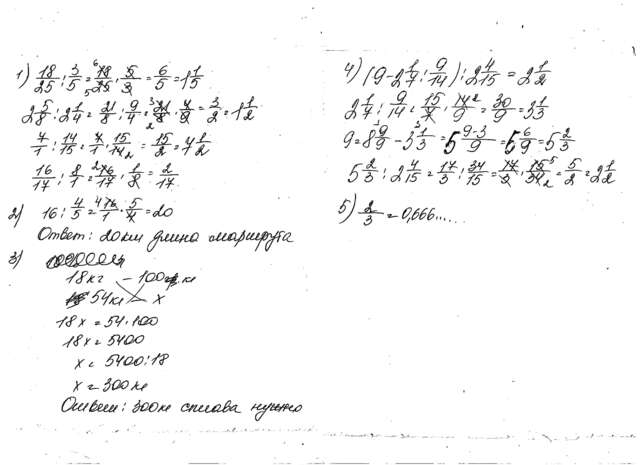 1) 18/25 : 3/5 = 18/25 · 5/3 = 6/5 = 1 1/5
2 5/8 : 2 1/4 = 21/8 : 9/4 = 21/8 · 4/9 = 3/2 = 1 1/2
7/1 : 14/15 = 7/1 · 15/14 = 15/2 = 7 1/2
16/17 : 8/1 = 16/17 · 1/8 = 2/17
2) 16 : 4/5 = 16/1 · 5/4 = 20
Ответ: 20 км длина маршрута
3)
18 кг – 100 кг
54 кг – x
18x = 54·100
18x = 5400
x = 5400:18
x = 300 кг
Ответ: 300 кг сплава нужно
4) (9 - 2 1/7 : 9/14) : 2 4/15 = 2 1/2
2 1/7 : 9/14 = 15/7 · 14/9 = 30/9 = 3 1/3
9 = 8 9/9 - 3 1/3 = 5 9-3/9 = 5 6/9 = 5 2/3
5 2/3 : 2 4/15 = 17/3 : 34/15 = 17/3 · 15/34 = 5/2 = 2 1/2
5) 2/3 = 0,666.....